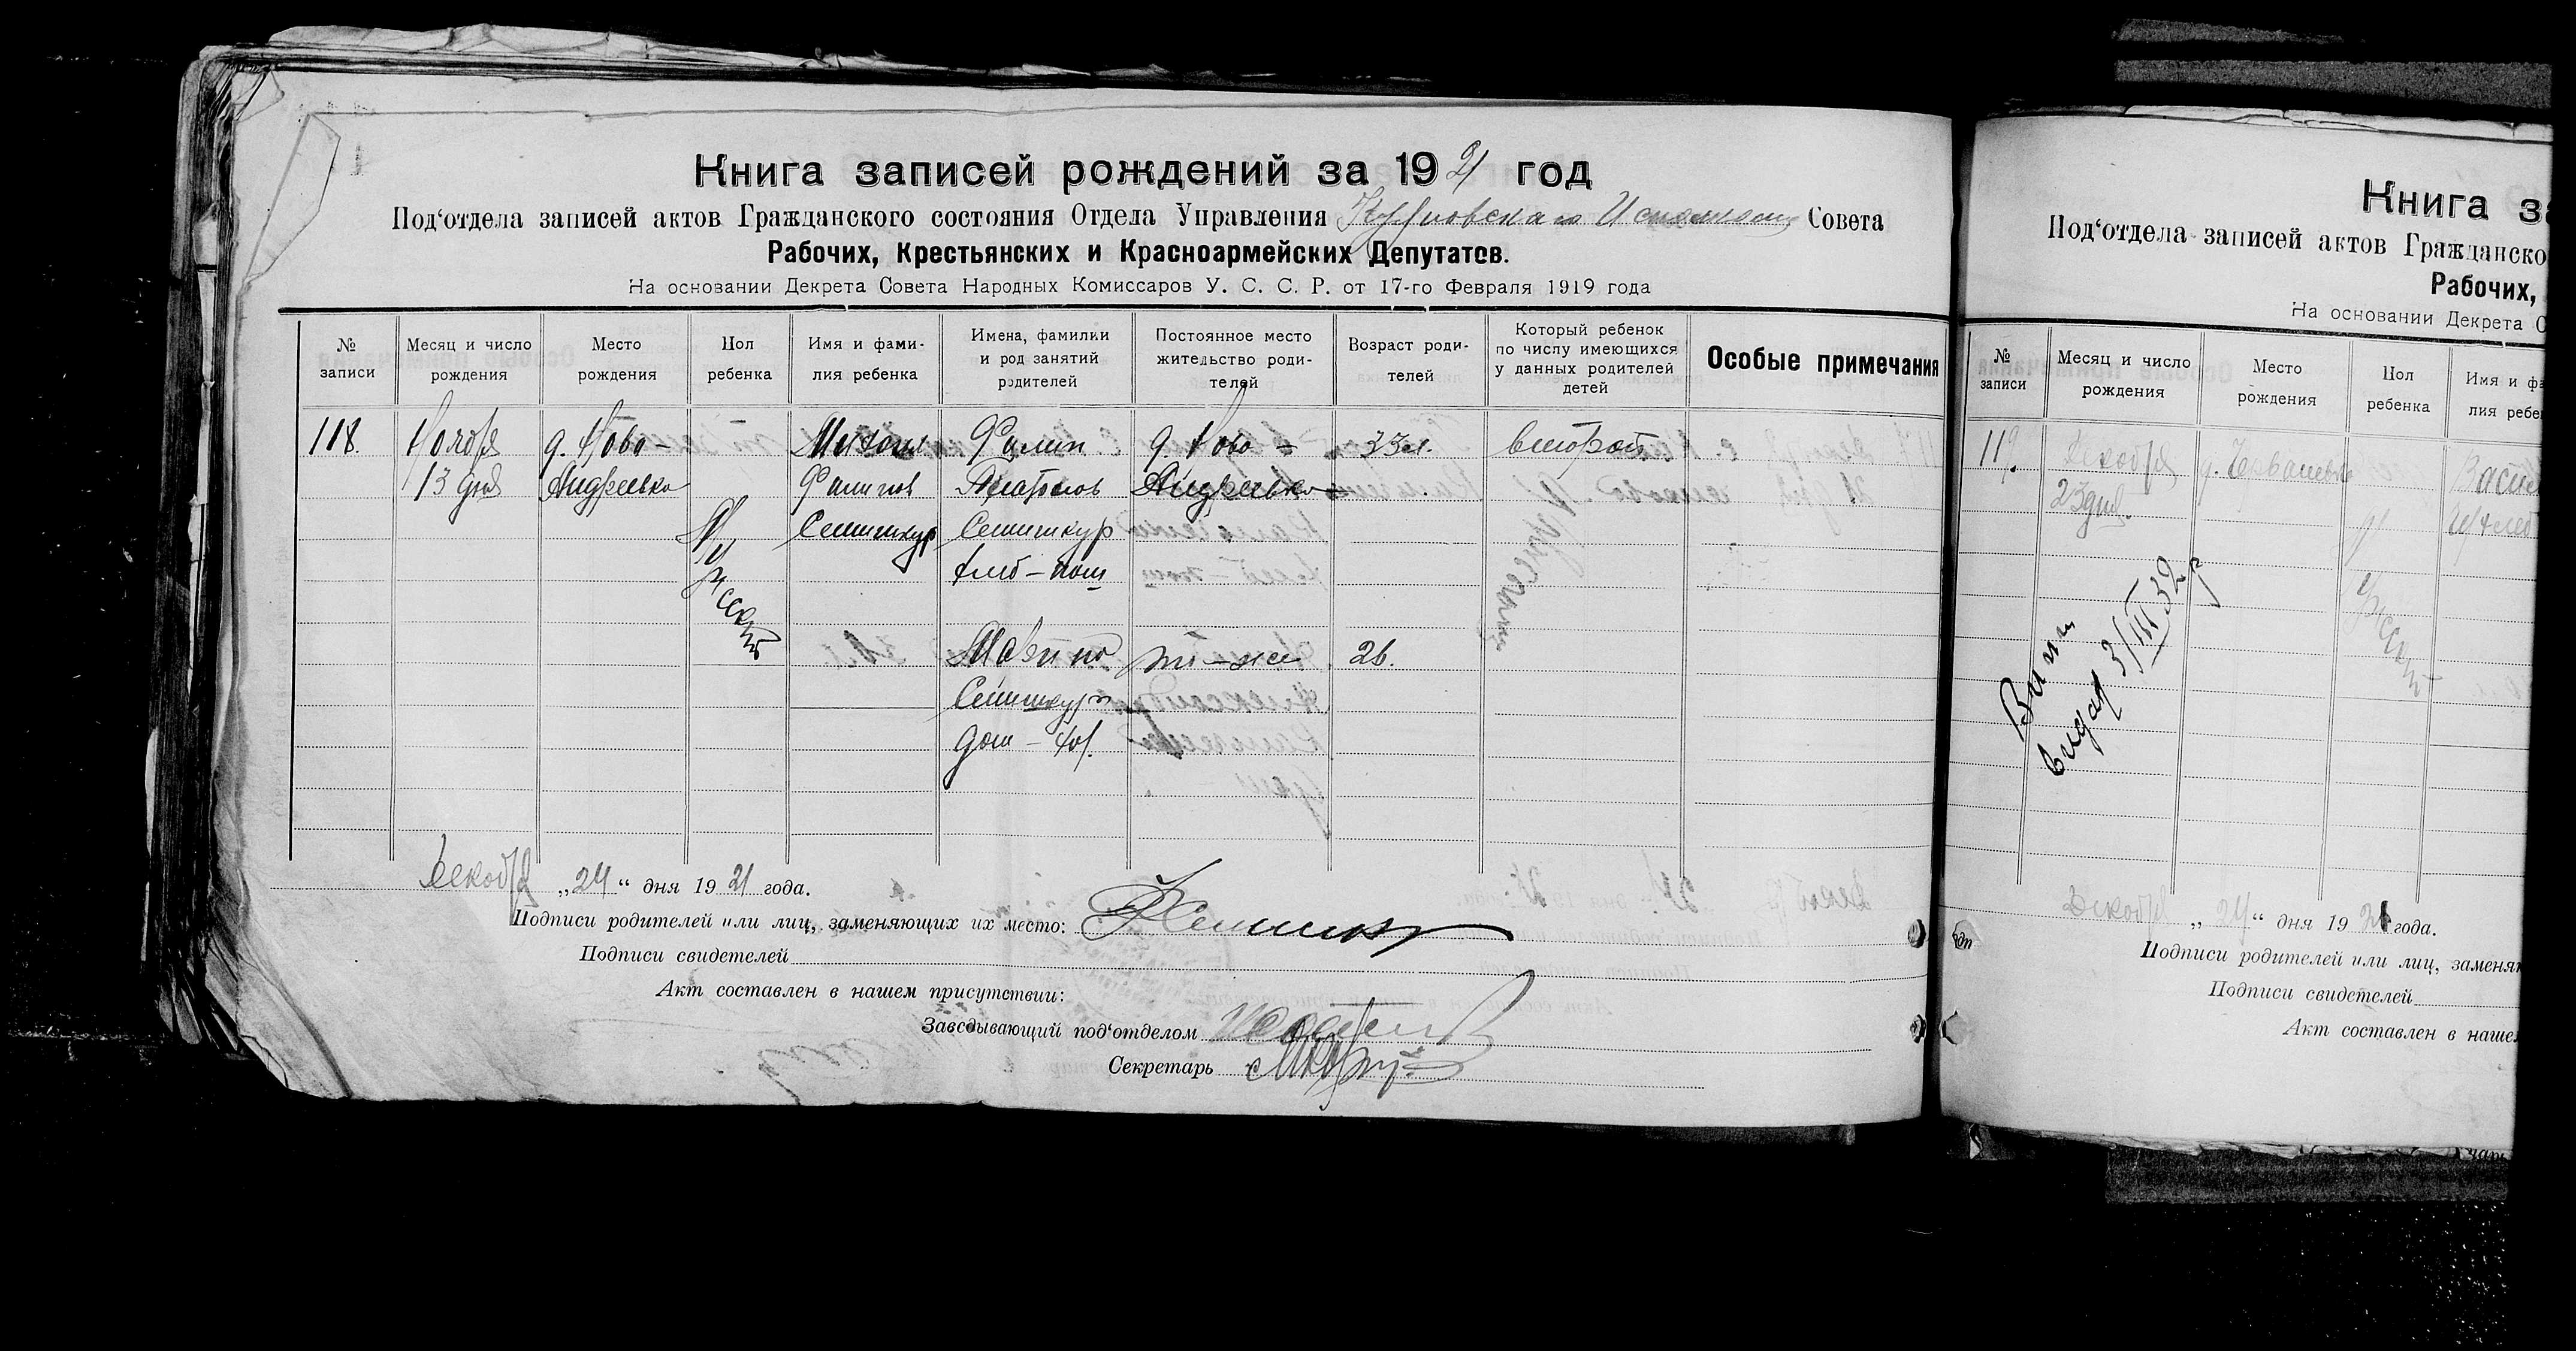 Книга записей рождений за 1921 год
Под‘отдела записей актов Гражданского состояния Отдела Управления Совета
Рабочих, Крестьянских и Красноармейских Депутатов.
На основании Декрета Совета Народных Комиссаров У. С. С. Р. от 17-го Февраля 1919 года
№ записи
Месяц и число рождения
Место рождения
Пол ребенка
Имя и фамилия ребенка
Имена, фамилии и род занятий родителей
Постоянное место жительство родителей
Возраст родителей
Который ребенок по числу имеющихся у данных родителей детей
Особые примечания
118.
Ноября
13 дня
д. Ново-
Андреевка
Мужской
Филипов
Семишкур
Филип
Семишкур
хлеб-паш
д. Ново-
Андреевка
33 л.
второй
Семишкур
дом-хоз.
там-же
26.
Декабря „24“ дня 1921 года.
Подписи родителей или лиц, заменяющих их место:
Подписи свидетелей
Акт составлен в нашем присутствии:
Заведывающий под‘отделом
Секретарь
Книга з
Под‘отдела записей актов Гражданско
Рабочих,
На основании Декрета С
№ записи
Месяц и число рождения
Место рождения
Пол ребенка
Имя и фа
лия ребе
119.
Декабря
23 дня.
Мужской
видан 3/III 32 р
Декабря „24“ дня 1921 года.
Подписи родителей или лиц, заменя
Подписи свидетелей
Акт составлен в наше